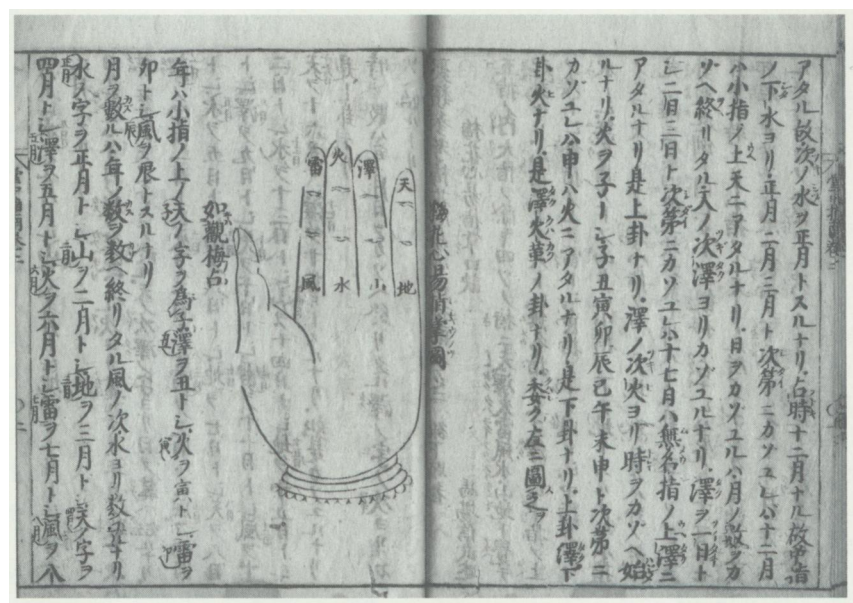 アタル故次ノ水ヲ正月トスルナリ占時十二月ナル故中指
ノ下水ヨリ正月二月三月ト次第ニカゾユレバ十二月
ハ小指ノ上天ニアタルナリ日ヲカゾユルハ月ノ数ヲカ
ゾヘ終リタル天ノ次澤ヨリカゾユルナリ澤ヲ一日ト
シ二日三日ト次第ニカゾユレバ十七日ハ無名指ノ上澤ニ
アタルナリ是上卦ナリ澤ノ次火ヨリ時ヲカゾヘ始
ルナリ火ヲ子トシ子丑寅卯辰巳午未申ト次第ニ
カゾユレバ申ハ火ニアタルナリ是下卦ナリ上卦澤下
卦火ナリ是澤火革ノ卦ナリ委ク左ニ圖之
梅花心易指掌圖
天
澤
火
雷
地
山
水
風
如觀梅占
年ハ小指ノ上ノ天ノ字ヲ為子澤ヲ丑トシ火ヲ寅トシ雷ヲ
卯トシ風ヲ辰トスルナリ
月ヲ数ルハ年ノ数ヲ数ヘ終リタル風ノ次水ヨリ数ルナリ
水ノ字ヲ正月トシ山ヲ二月トシ地ヲ三月トシ天ノ字ヲ
四月トシ澤ヲ五月トシ火ヲ六月トシ雷ヲ七月トシ風ヲ八